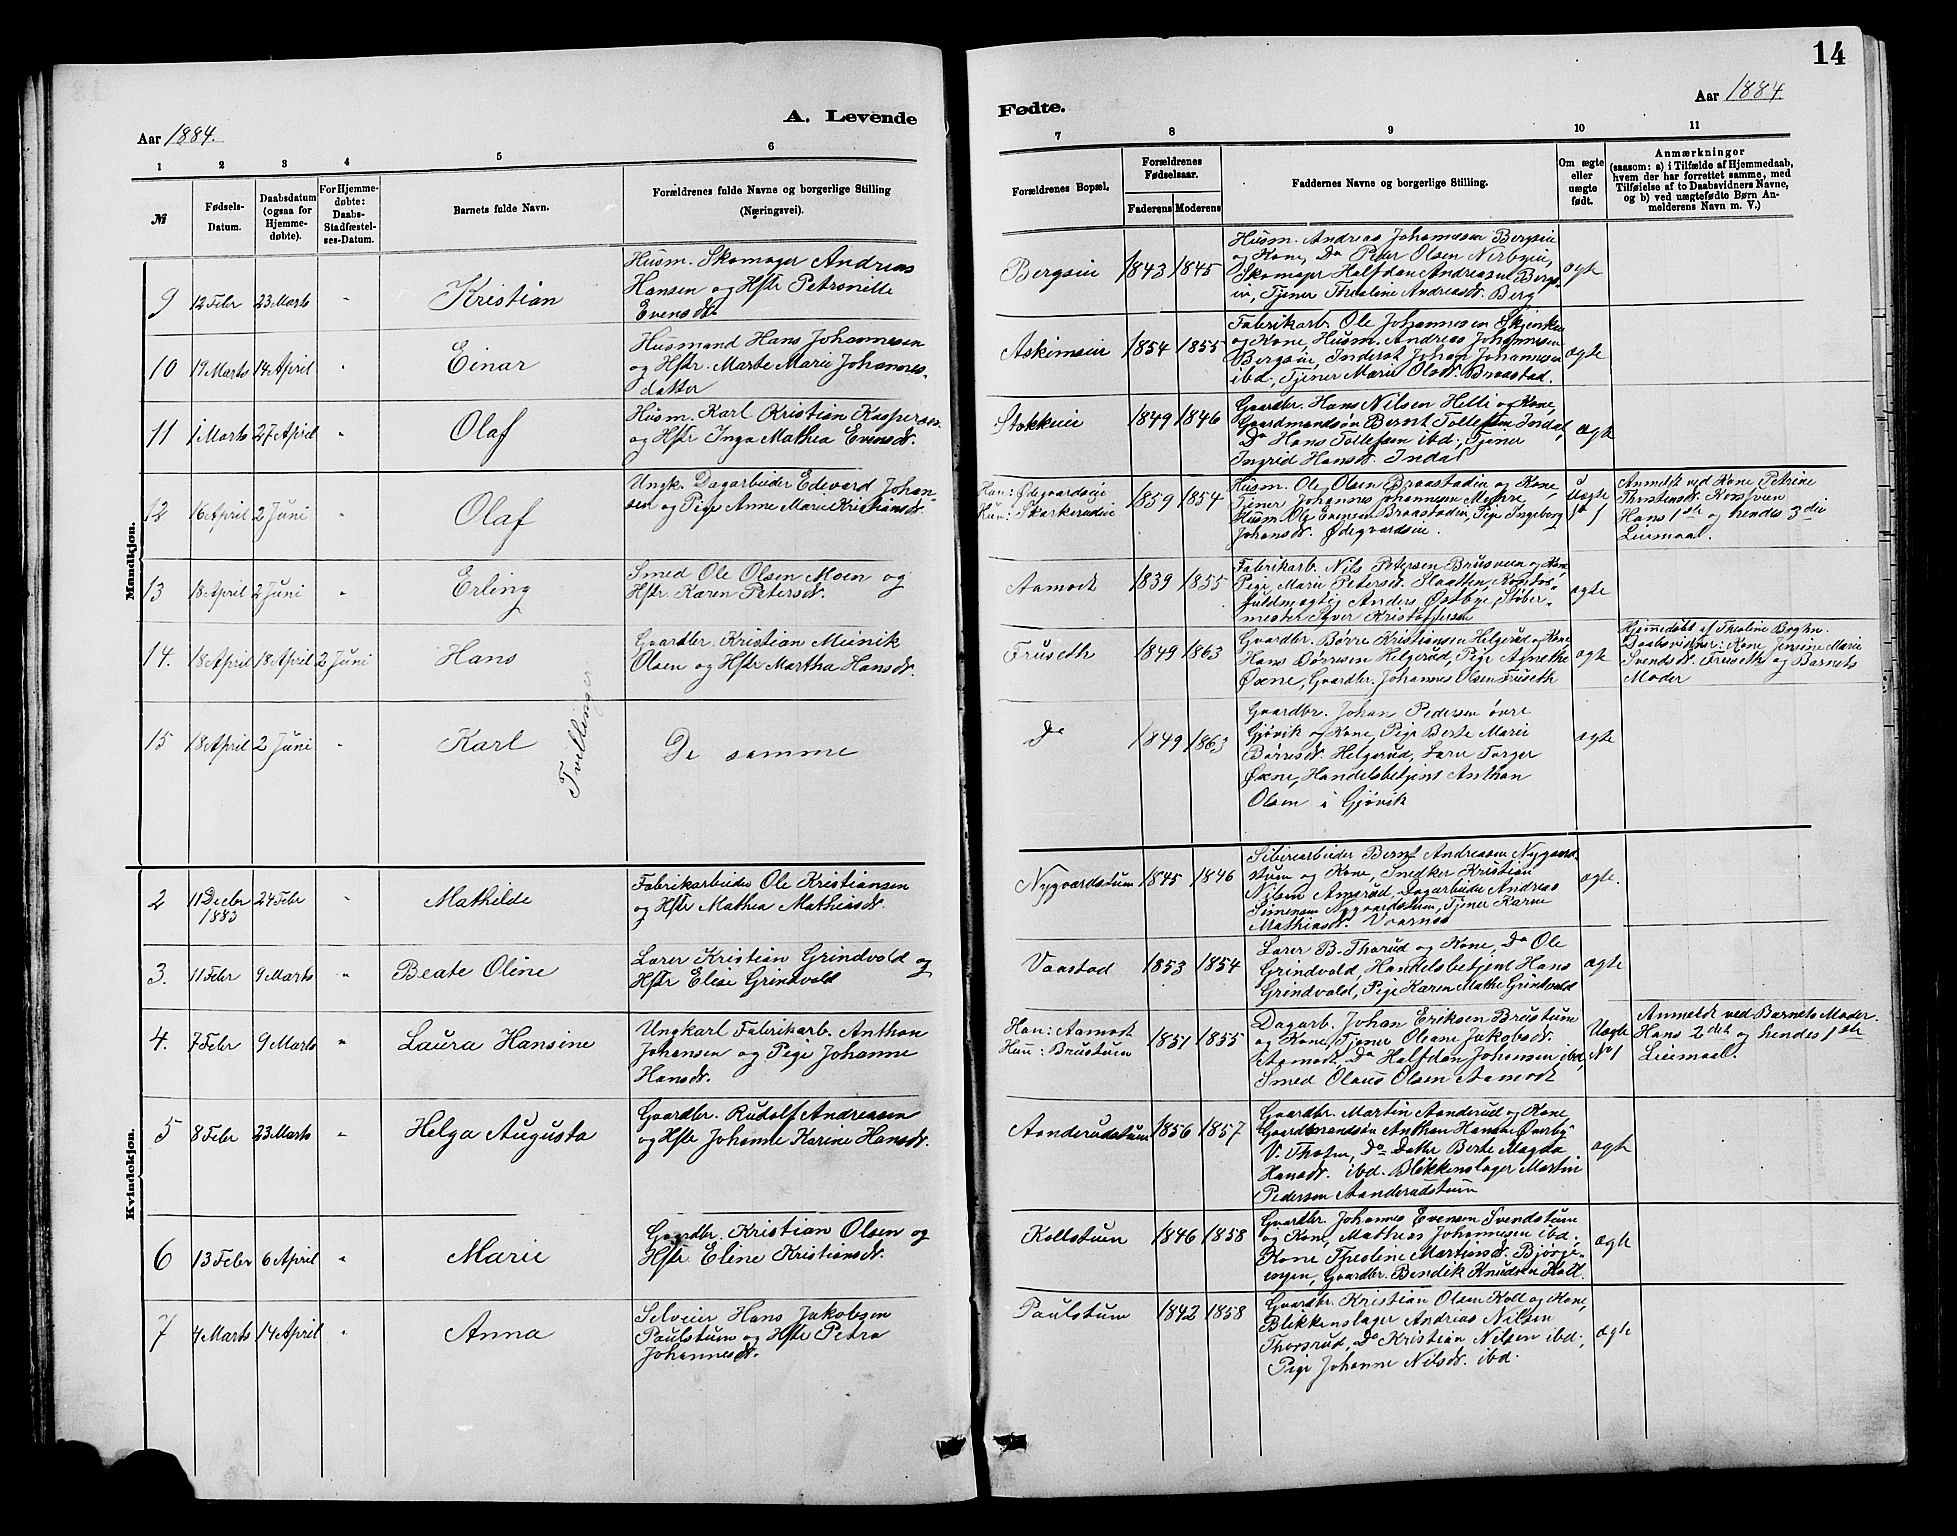 14
A. Levende
Fødte.
Aar 1884.
Aar 1884.
1 2 3 4 5 6 7 8 9 10 11
№
Fødsels-
Datum.
Daabsdatum
(ogsaa for
Hjemme-
døbte).
For Hjemme-
døbte:
Daabs-
Stadfæstel-
ses-Datum.
Barnets fulde Navn.
Forældrenes fulde Navne og borgerlige Stilling
(Næringsvei).
Forældrenes Bopæl.
Forældrenes
Fødselsaar.
Faderens Moderens
Faddernes Navne og borgerlige Stilling.
Om ægte
eller
uægte
født.
Anmærkninger
(saasom: a) i Tilfælde af Hjemmedaab,
hvem der har forrettet samme, med
Tilføielse af to Daabsvidners Navne,
og b) ved uægtefødte Børn An-
melderens Navn m. V.)
Mandkjøn.
9 12 Febr 23 Marts " Kristian
Husm. Skomager Andreas
Hansen og Hstr Petronelle
Evensdr
Bergseie 1843 1845
Husm. Andreas Johannesen Bergseie
og Kone, Do Peter Olsen Nerbyeie,
Skomager Halfdan Andreasen Bergs-
eie, Tjener Theoline Andreasdr. Berg
ægte
10 19 Marts 14 April " Einar
Husmand Hans Johannesen
og Hstr. Marte Marie Johannes-
datter
Askimeie 1854 1855
Fabrikarb. Ole Johannesen Skjerken
og Kone, Husm. Andreas Johannesen
Bergseie, Inderst Johan Johannesen
ibd., Tjener Marie Olsdr. Braastad.
ægte
11 1 Marts 27 April " Olaf
Husm. Karl Kristian Kaspersen
og Hstr Inga Mathea Evensdr.
Stokkeie 1849 1846
Gaardbr. Hans Nilsen Helli og Kone,
Gaardmandsøn Bernt Tollefsen Indal,
Do Hans Tollefsen ibd., Tjener
Ingrid Hansdr. Indal
ægte
12 16 April 2 Juni " Olaf
Ungk. Dagarbeider Edevard Johan-
sen og Pige Anne Marie Kristiansdr.
Han: Ødegaardseie
Hun: Skarkerudeie 1859 1854
Husm. Ole Olsen Braastadeie og Kone,
Tjener Johannes Johannesen Myhre,
Husm. Ole Evensen Braastadeie, Pige Ingeborg
Johansdr. Ødegaardseie.
Uægte
No 1
Anmeldt ved Kone Petrine
Thorstensdr. Korsveien
Hans 1ste og hendes 3die
Leiermaal.
13 18 April 2 Juni " Erling
Smed Ole Olsen Moen og
Hstr. Karen Petersdr.
Aamodt 1839 1855
Fabrikarb. Nils Petersen Brusveen og Kone
Pige Marie Petersdr. Slaatten, Kontor-
fuldmægtig Anders Østbye, Støber-
mester Syver Kristoffersen
ægte
14. 18 April 18 April 2 Juni Hans
Gaardbr. Kristian Meinik
Olsen og Hstr Martha Hansdr.
Fruseth 1849 1863
Gaardbr. Børre Kristiansen Helgerud og Kone
Hans Børresen Helgerud, Pige Agnethe
Øxne, Gaardbr. Johannes Olsen Fruseth
ægte
Hjemmedøbt af Theoline Berghn.
Daabsvidner: Kone Jensine Marie
Svendsdr. Fruseth og Barnets
Moder
Tvillinger
15 18 April 2 Juni " Karl
De samme
Do 1849 1863
Gaardbr. Johan Pedersen øvre
Gjøvik og Kone, Pige Berte Marie
Børresdr. Helgerud, Lærer Torger
Øxne, Handelsbetjent Anthon
Olsen i Gjøvik
ægte
Kvindekjøn.
2 11 Decbr
1883 24 Febr " Mathilde
Fabrikarbeider Ole Kristiansen
og Hstr Mathea Mathiasdr.
Nygaardstuen 1845 1846
Sliberiarbeider Bernt Andreasen Nygaard-
stuen og Kone, Snedker Kristian
Nilsen Amsrud, Dagarbeider Andreas
Simensen Nygaardstuen, Tjener Karen
Mathiasdr. Vaarnes
ægte.
3. 11 Febr 9 Marts " Beate Oline
Lærer Kristian Grindvold og
Hstr Elise Grindvold
Vaastad 1853 1854
Lærer B. Thorud og Kone, Do Ole
Grindvold, Handelsbetjent Hans
Grindvold, Pige Karen Mathe Grindvold
ægte
4. 7 Febr 9 Marts " Laura Hansine
Ungkarl Fabrikarb. Anthon
Johansen og Pige Johanne
Hansdr.
Han: Aamodt
Hun: Brustuen 1851 1855
Dagarb. Johan Eriksen Brustuen
og Kone, Tjener Oleane Jakobsdr.
Aamodt, Do Halfdan Johansen ibd,
Smed Olaus Olsen Aamodt
Uægte
No 1
Anmeldt ved Barnets Moder.
Hans 2det og hendes 1ste
Leiermaal.
5 8 Febr 23 Marts " Helga Augusta
Gaardbr. Rudolf Andreasen
og Hstr Johanne Karine Hansdr.
Aanderudstuen 1856 1857
Gaardbr. Martin Aanderud og Kone,
Gaardmandsøn Anthon Hansen Øverby
V. Thoten, Do Datter Berte Magda
Hansdr. ibd. Blikkenslager Martin
Pedersen Aanderudstuen
ægte
6 13 Febr 6 April " Marie
Gaardbr. Kristian Olsen og
Hstr Eline Kristiansdr.
Kollstuen 1846 1858
Gaardbr. Johannes Evensen Svendstuen
og Kone, Mathias Johannesen ibd.
Kone Theoline Martinsdr. Bjørge-
engen, Gaardbr. Bendik Knudsen Koll.
ægte
7 4 Marts 14 April " Anna
Selveier Hans Jakobsen
Paulstuen og Hstr Petra
Johannesdr.
Paulstuen 1842 1858
Gaardbr. Kristian Olsen Koll og Kone,
Blikkenslager Andreas Nilsen
Thorsrud, Do Kristian Nilsen ibd.,
Pige Johanne Nilsdr. ibd.
ægte